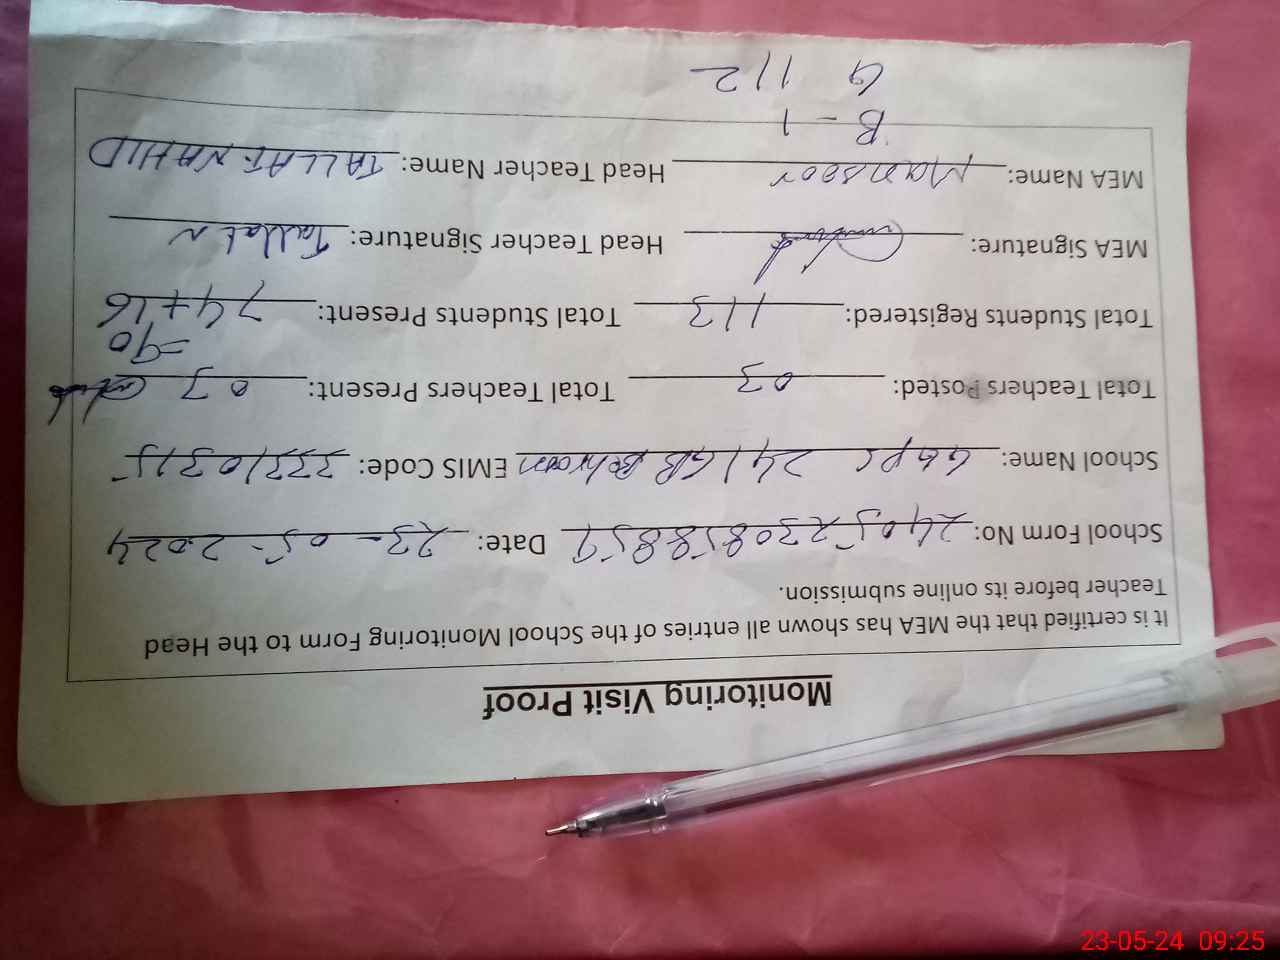 Monitoring Visit Proof
It is certified that the MEA has shown all entries of the School Monitoring Form to the Head
Teacher before its online submission.
School Form No: 2405230858859 Date: 23-05-2024
School Name: GGPS 241 GB EMIS Code: 33310315
Total Teachers Posted: 03 Total Teachers Present: 03
Total Students Registered: 113 Total Students Present: 74+16
=90
MEA Signature: Head Teacher Signature: Tallat N
MEA Name: Mansoor Head Teacher Name: TALLAT NAHID
B - 1
G 112
23-05-24 09:25